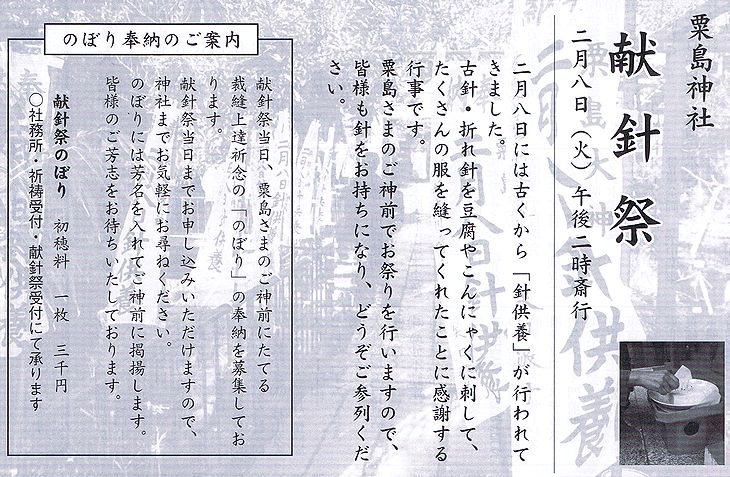 粟島神社
献針祭
二月八日（火）午後二時斎行
二月八日には古くから「針供養」が行われて
きました。
古針・折れ針を豆腐やこんにゃくに刺して、
たくさんの服を縫ってくれたことに感謝する
行事です。
粟島さまのご神前でお祭りを行いますので、
皆様も針をお持ちになり、どうぞご参列くだ
さい。
のぼり奉納のご案内
献針祭当日、粟島さまのご神前にたてる
裁縫上達祈念の「のぼり」の奉納を募集してお
ります。
献針祭当日までお申し込みいただけますので、
神社までお気軽にお尋ねください。
のぼりには芳名を入れてご神前に掲揚します。
皆様のご芳志をお待ちいたしております。
献針祭のぼり　初穂料　一枚　三千円
〇社務所・祈祷受付・献針祭受付にて承ります